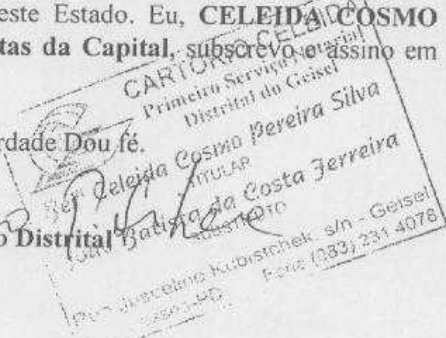 este Estado. Eu, CELEIDA COSMO
tas da Capital, subscrevo e assino em
rdade Dou fé.
o Distrital
CARTÓRIO CELEIDA
Primeiro Serviço Notarial
Distrital do Geisel
Celeida Cosmo Pereira Silva
TITULAR
Batista da Costa Ferreira
SUBSTITUTO
Rua Juscelino Kubistchek, s/n - Geisel
Fone (083) 231 4078